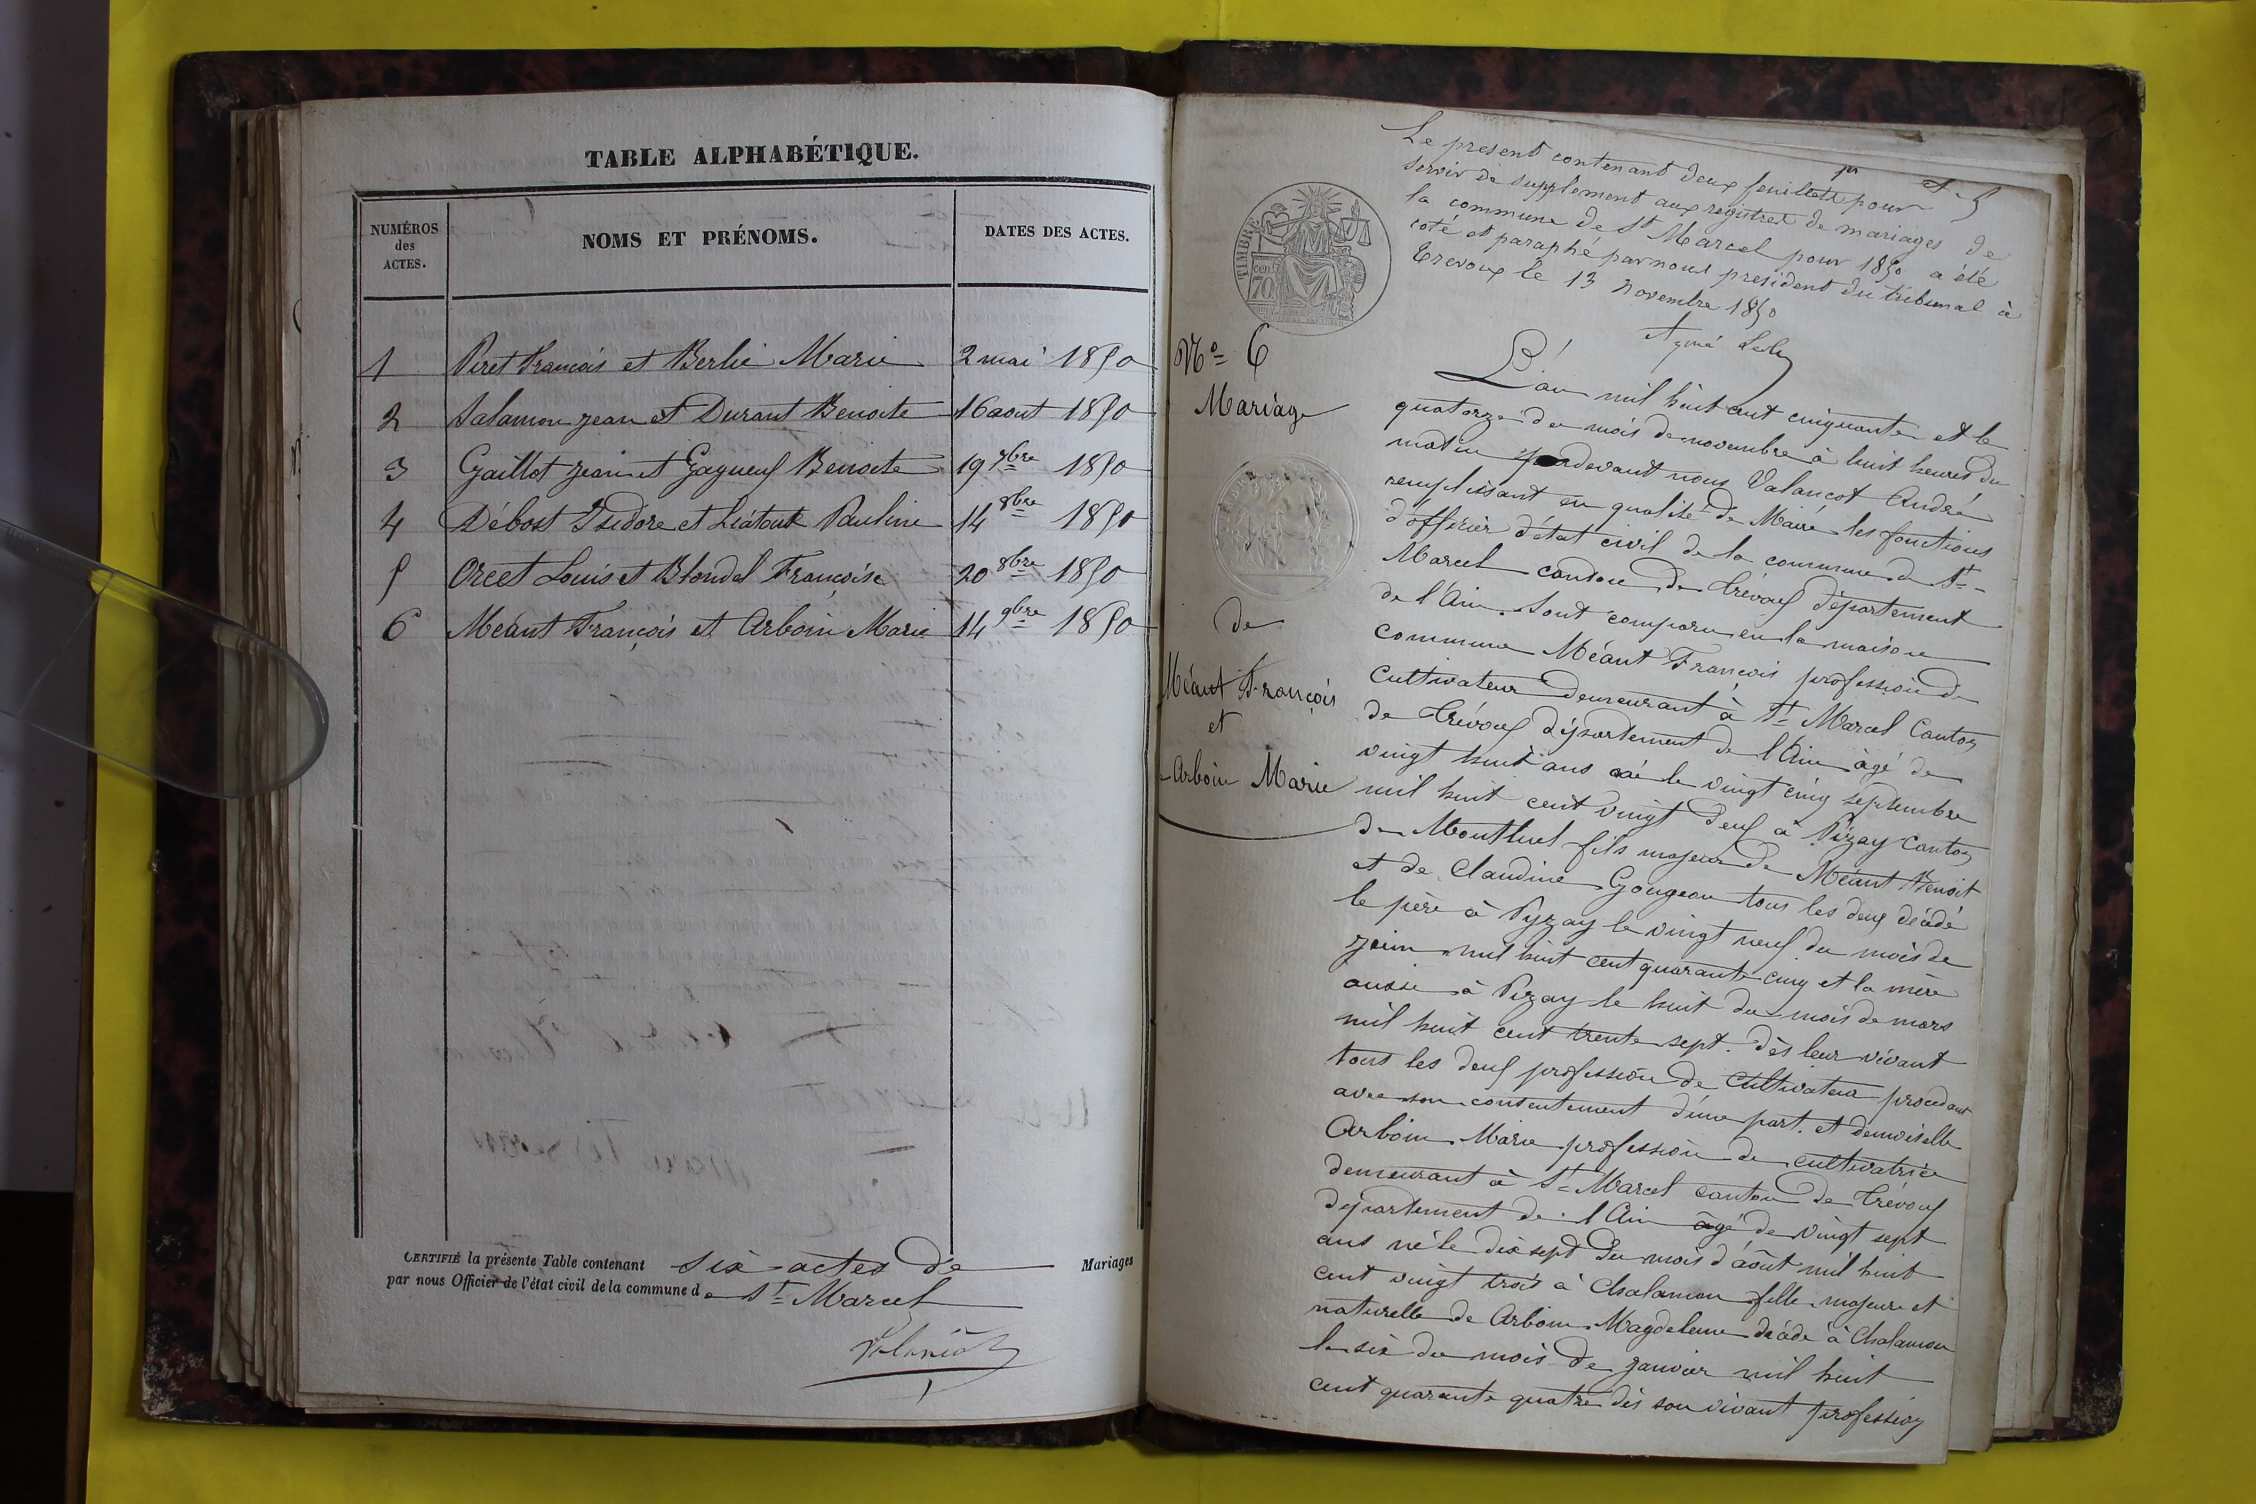 TABLE ALPHABÉTIQUE.
NUMÉROS
des
ACTES.
NOMS ET PRÉNOMS.
DATES DES ACTES.
1 Piret François et Berlie Marie 2 mai 1850
2 Salamon jean et Durant Benoite 16 aout 1850
3 Gaillot jean et Gagneux Benoite 19 7bre 1850
4 Débost Isidore et Liatout Pauline 14 8bre 1850
5 Orcet Louis et Blondel Françoise 20 8bre 1850
6 Méant François et Arboin Marie 14 9bre 1850
CERTIFIÉ la présente Table contenant six actes de Mariages
par nous Officier de l'état civil de la commune de St Marcel
Valancot
Le present contenant deux feuillets pour
servir de supplement aux registres de mariages de
la commune de St Marcel pour 1850 a été
coté et paraphé par nous president du tribunal à
Trevoux le 13 novembre 1850
TIMBRE
70
No 6
Mariage
de
Méant François
et
Arboin Marie
L'an mil huit cent cinquante et le
quatorze du mois de novembre à huit heures du
matin pardevant nous Valancot André
remplissant en qualité de Maire les fonctions
d'officier d'état civil de la commune de St
Marcel canton de Trévoux département
de l'Ain. Sont comparu en la maison
commune Méant François profession de
cultivateur demeurant à St Marcel Canton
de Trévoux département de l'Ain âgé de
vingt huit ans né le vingt cinq septembre
mil huit cent vingt deux à Pizay canton
de Montluel fils majeur de Méant Benoit
et de Claudine Gougeau tous les deux décédé
le père à Pyzay le vingt neuf du mois de
juin mil huit cent quarante cinq et la mère
aussi à Pizay le huit du mois de mars
mil huit cent trente sept. dès leur vivant
tous les deux profession de cultivateur procedant
avec son consentement d'une part. et demoiselle
Arboin Marie profession de cultivatrice
demeurant à St Marcel canton de Trévoux
département de l'Ain âgé de vingt sept
ans né le dix sept du mois d'août mil huit
cent vingt trois à Chalamon fille majeure et
naturelle de Arboin Magdeleine décédé à Chalamon
le six du mois de janvier mil huit
cent quarante quatre dès son vivant profession